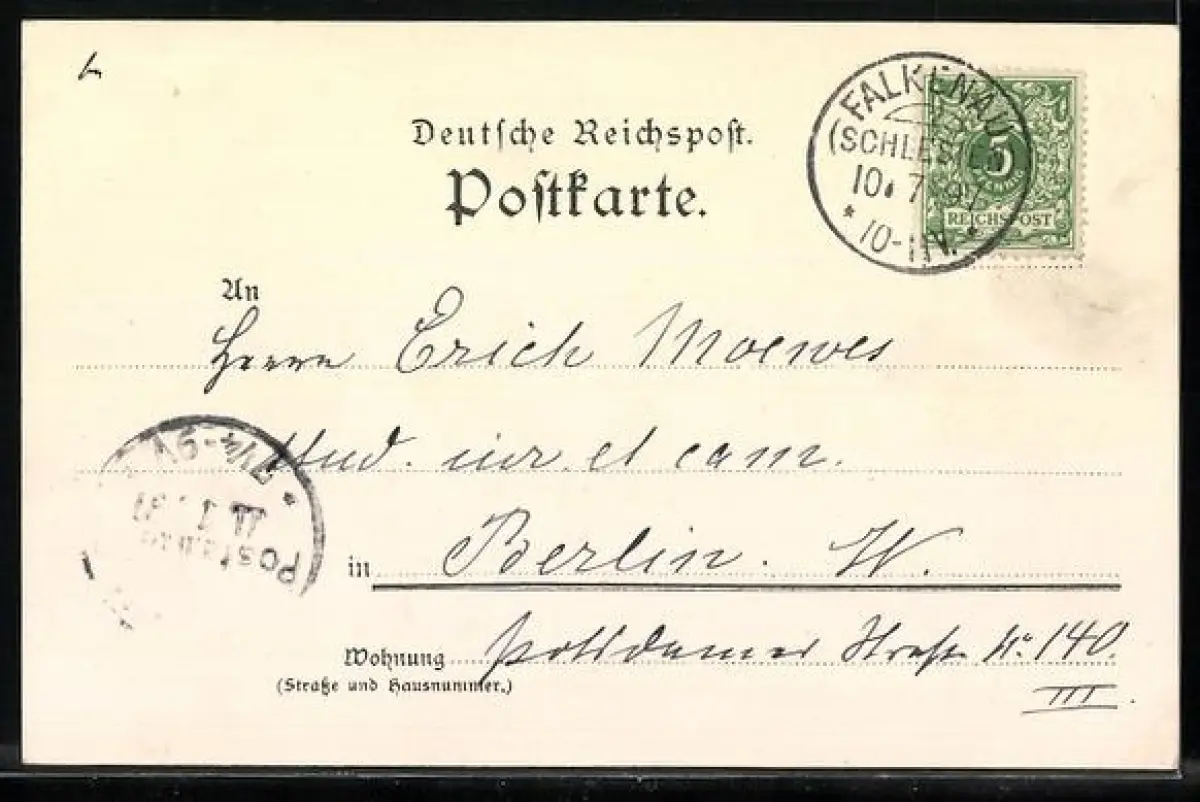 FALKENAU
(SCHLESIEN)
10. 7. 97
* 10-11V. *
5
REICHSPOST
Deutsche Reichspost.
Postkarte.
An
Herrn Erich Moewes
stud. iur. et cam.
7½-9V
11. 7. 97
in Berlin. W.
Wohnung Potsdamer Straße No 140.
(Straße und Hausnummer.)
III.